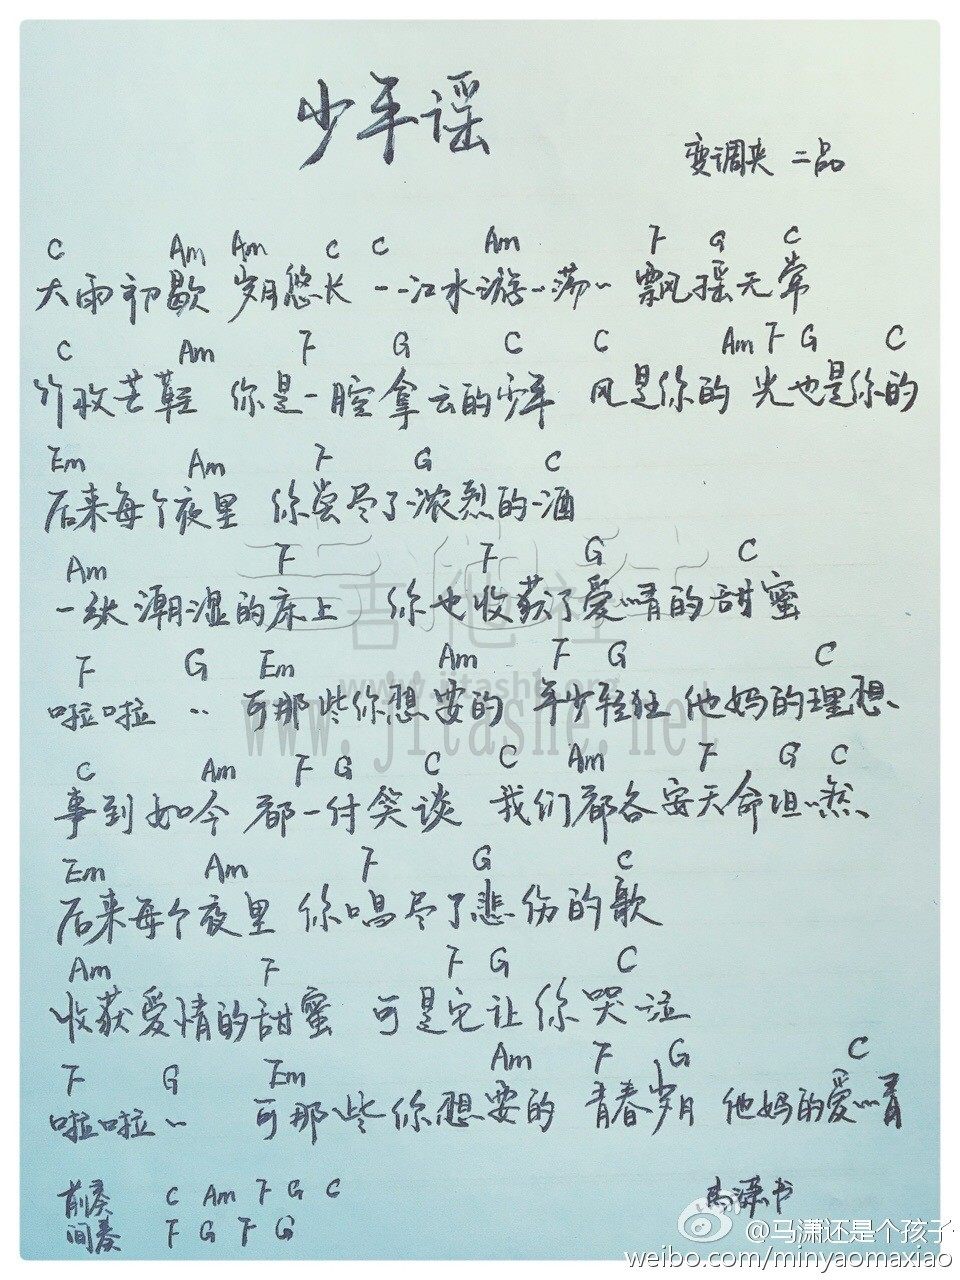 少年谣
变调夹 二品
C Am Am C C Am F G C
大雨初歇 岁月悠长 ··江水游··荡·· 飘摇无常
C Am F G C C Am F G C
竹杖芒鞋 你是一腔拿云的少年 风是你的 光也是你的
Em Am F G C
后来每个夜里 你尝尽了浓烈的酒
Am F F G C
一张潮湿的床上 你也收获了爱情的甜蜜
F G Em Am F G C
啦啦 ·· 可那些你想要的 年少轻狂 他妈的理想、
C Am F G C C Am F G C
事到如今 都一付笑谈 我们都各安天命坦··然、
Em Am F G C
后来每个夜里 你唱尽了悲伤的歌
Am F F G C
收获爱情的甜蜜 可是它让你哭泣
F G Em Am F G C
啦啦·· 可那些你想要的 青春岁月 他妈的爱情
前奏 C Am F G C
间奏 F G F G
书
吉他社
www.jitashe.org
www.jitashe.net
@马潇还是个孩子
weibo.com/minyaomaxiao